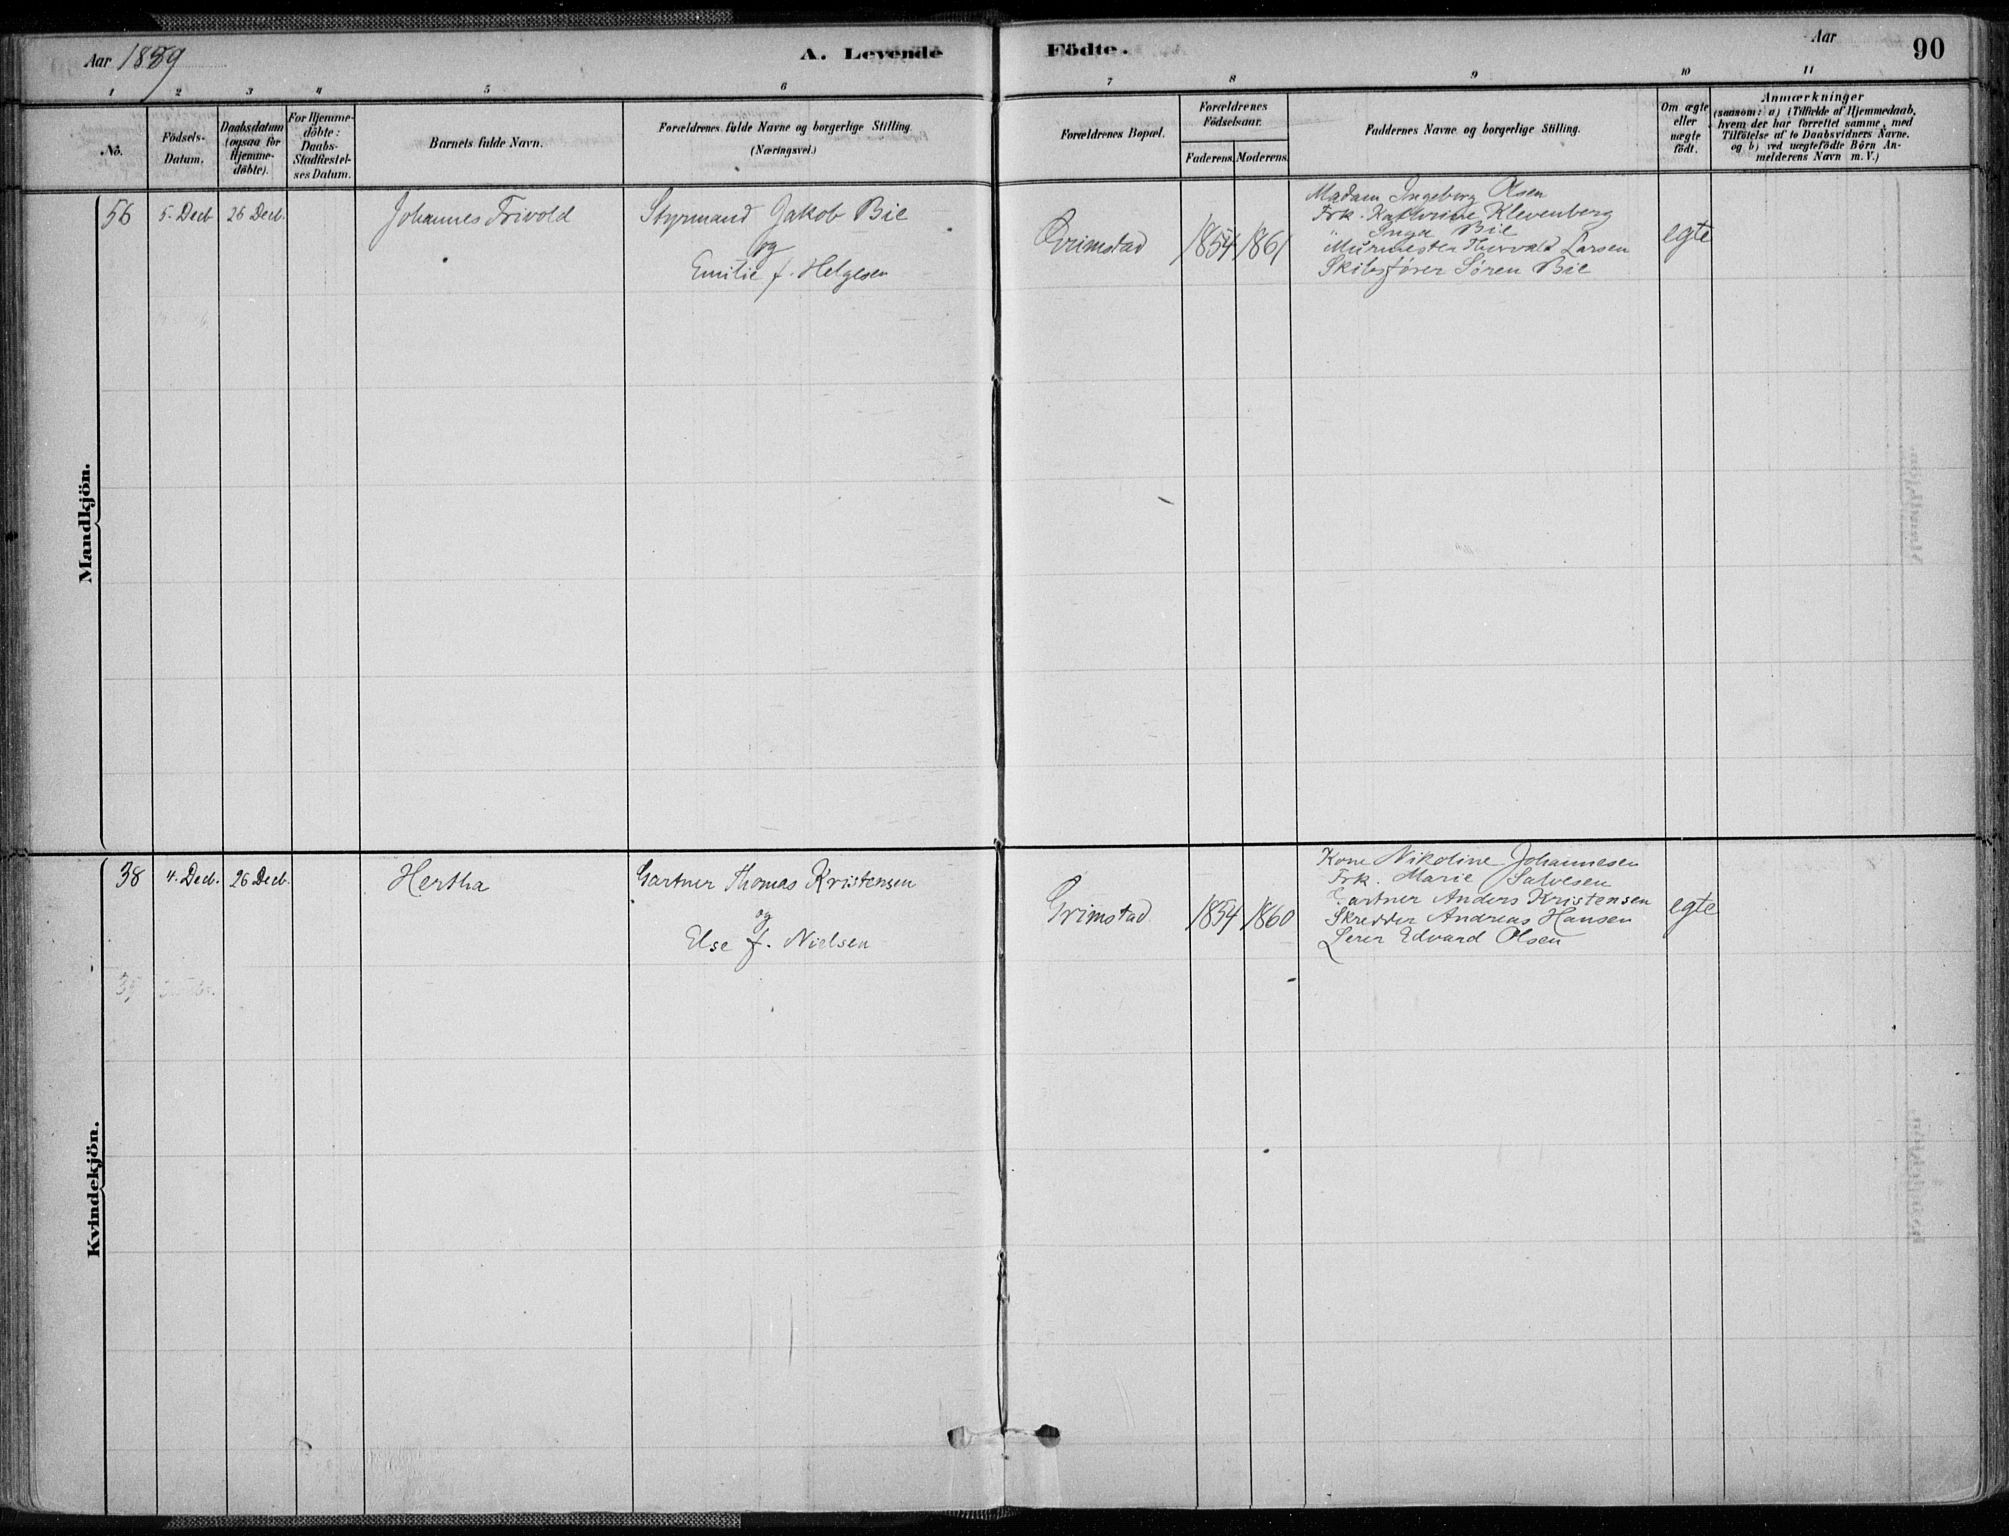 Aar 1889
A. Levende Födte.
Aar
90
1 2 3 4 5 6 7 8 9 10 11
No.
Födsels-
Datum.
Daabsdatum
(ogsaa for
Hjemme-
døbte).
For Hjemme-
döbte:
Daabs-
Stadfæstel-
ses Datum.
Barnets fulde Navn.
Forældrenes fulde Navne og borgerlige Stilling.
(Næringsvei.)
Forældrenes Bopæl.
Forældrenes
Födselsaar.
Faderens. Moderens.
Faddernes Navne og borgerlige Stilling.
Om ægte
eller
uægte
födt.
Anmærkninger
(saasom: a) i Tilfælde af Hjemmedaab,
hvem der har forrettet samme, med
Tilföielse af to Daabsvidners Navne.
og b) ved uægtefödte Börn An-
melderens Navn m. V.)
Mandkjön.
56
5. Decb
26 Decb.
Johannes Frivold
Styrmand Jakob Bie
og
Emilie f. Helgesen
Grimstad
1854
1861
Madam Ingeborg Olsen
Frk. Kathrine Klevenberg
" Inga Bie
Murmester Thorvald Larsen
Skibsfører Søren Bie
egte
Kvindekjön.
38
4. Decb.
26 Decb.
Hertha
Gartner Thomas Kristensen
og
Else f. Nielsen
Grimstad
1854
1860
Kone Nikoline Johannesen
Frk. Marie Salvesen
Gartner Anders Kristensen
Skredder Andreas Hansen
Lerer Edvard Olsen
egte
39